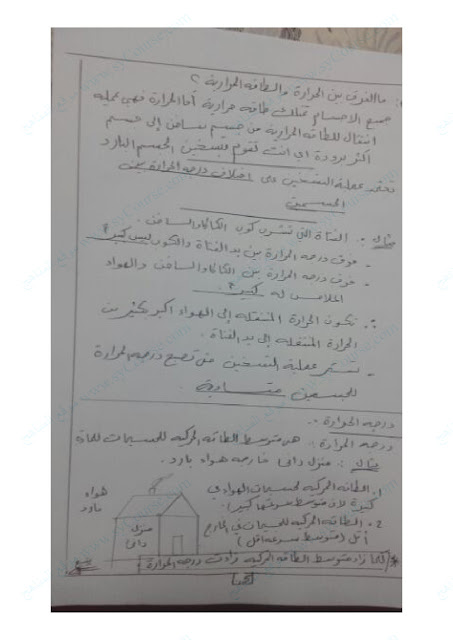 ما الفرق بين الحرارة والطاقه الحرارية ؟
جميع الاجسام تمتلك طاقه حرارية أما الحرارة فهي عمليه
انتقال للطاقه الحرارية من جسم ساخن إلى جسم
أكثر برودة اي انت تقوم بتسخين الجسم البارد
تعتمد عملية التسخين على اختلاف درجه الحرارة بين
الجسمين
مثال : الفتاة التي تشرب كوب الكاكاو الساخن .
- فرق درجه الحرارة بين يد الفتاة والكوب ليس كبير
- فرق درجه الحرارة بين الكاكاو الساخن والهواء
الملامس له كبير
∴ تكون الحرارة المنتقله إلى الهواء اكبر بكثير من
الحرارة المنتقله إلى يد الفتاة .
- تستمر عملية التسخين حتى تصبح درجه الحرارة
للجسمين متساوية .
درجه الحرارة :
درجه الحرارة : هي متوسط الطاقه الحركيه للجسيمات للمادة
مثال : منزل دافئ خارجه هواء بارد .
1. الطاقه الحركيه لجسيمات الهواء
كبيرة لان متوسط سرعتها كبير
2. الطاقه الحركيه للجسيمات في الخارج
أقل ( متوسط سرعه اقل )
هواء
بارد
منزل
دافئ
كلما زاد متوسط الطاقه الحركيه زادت درجه الحرارة